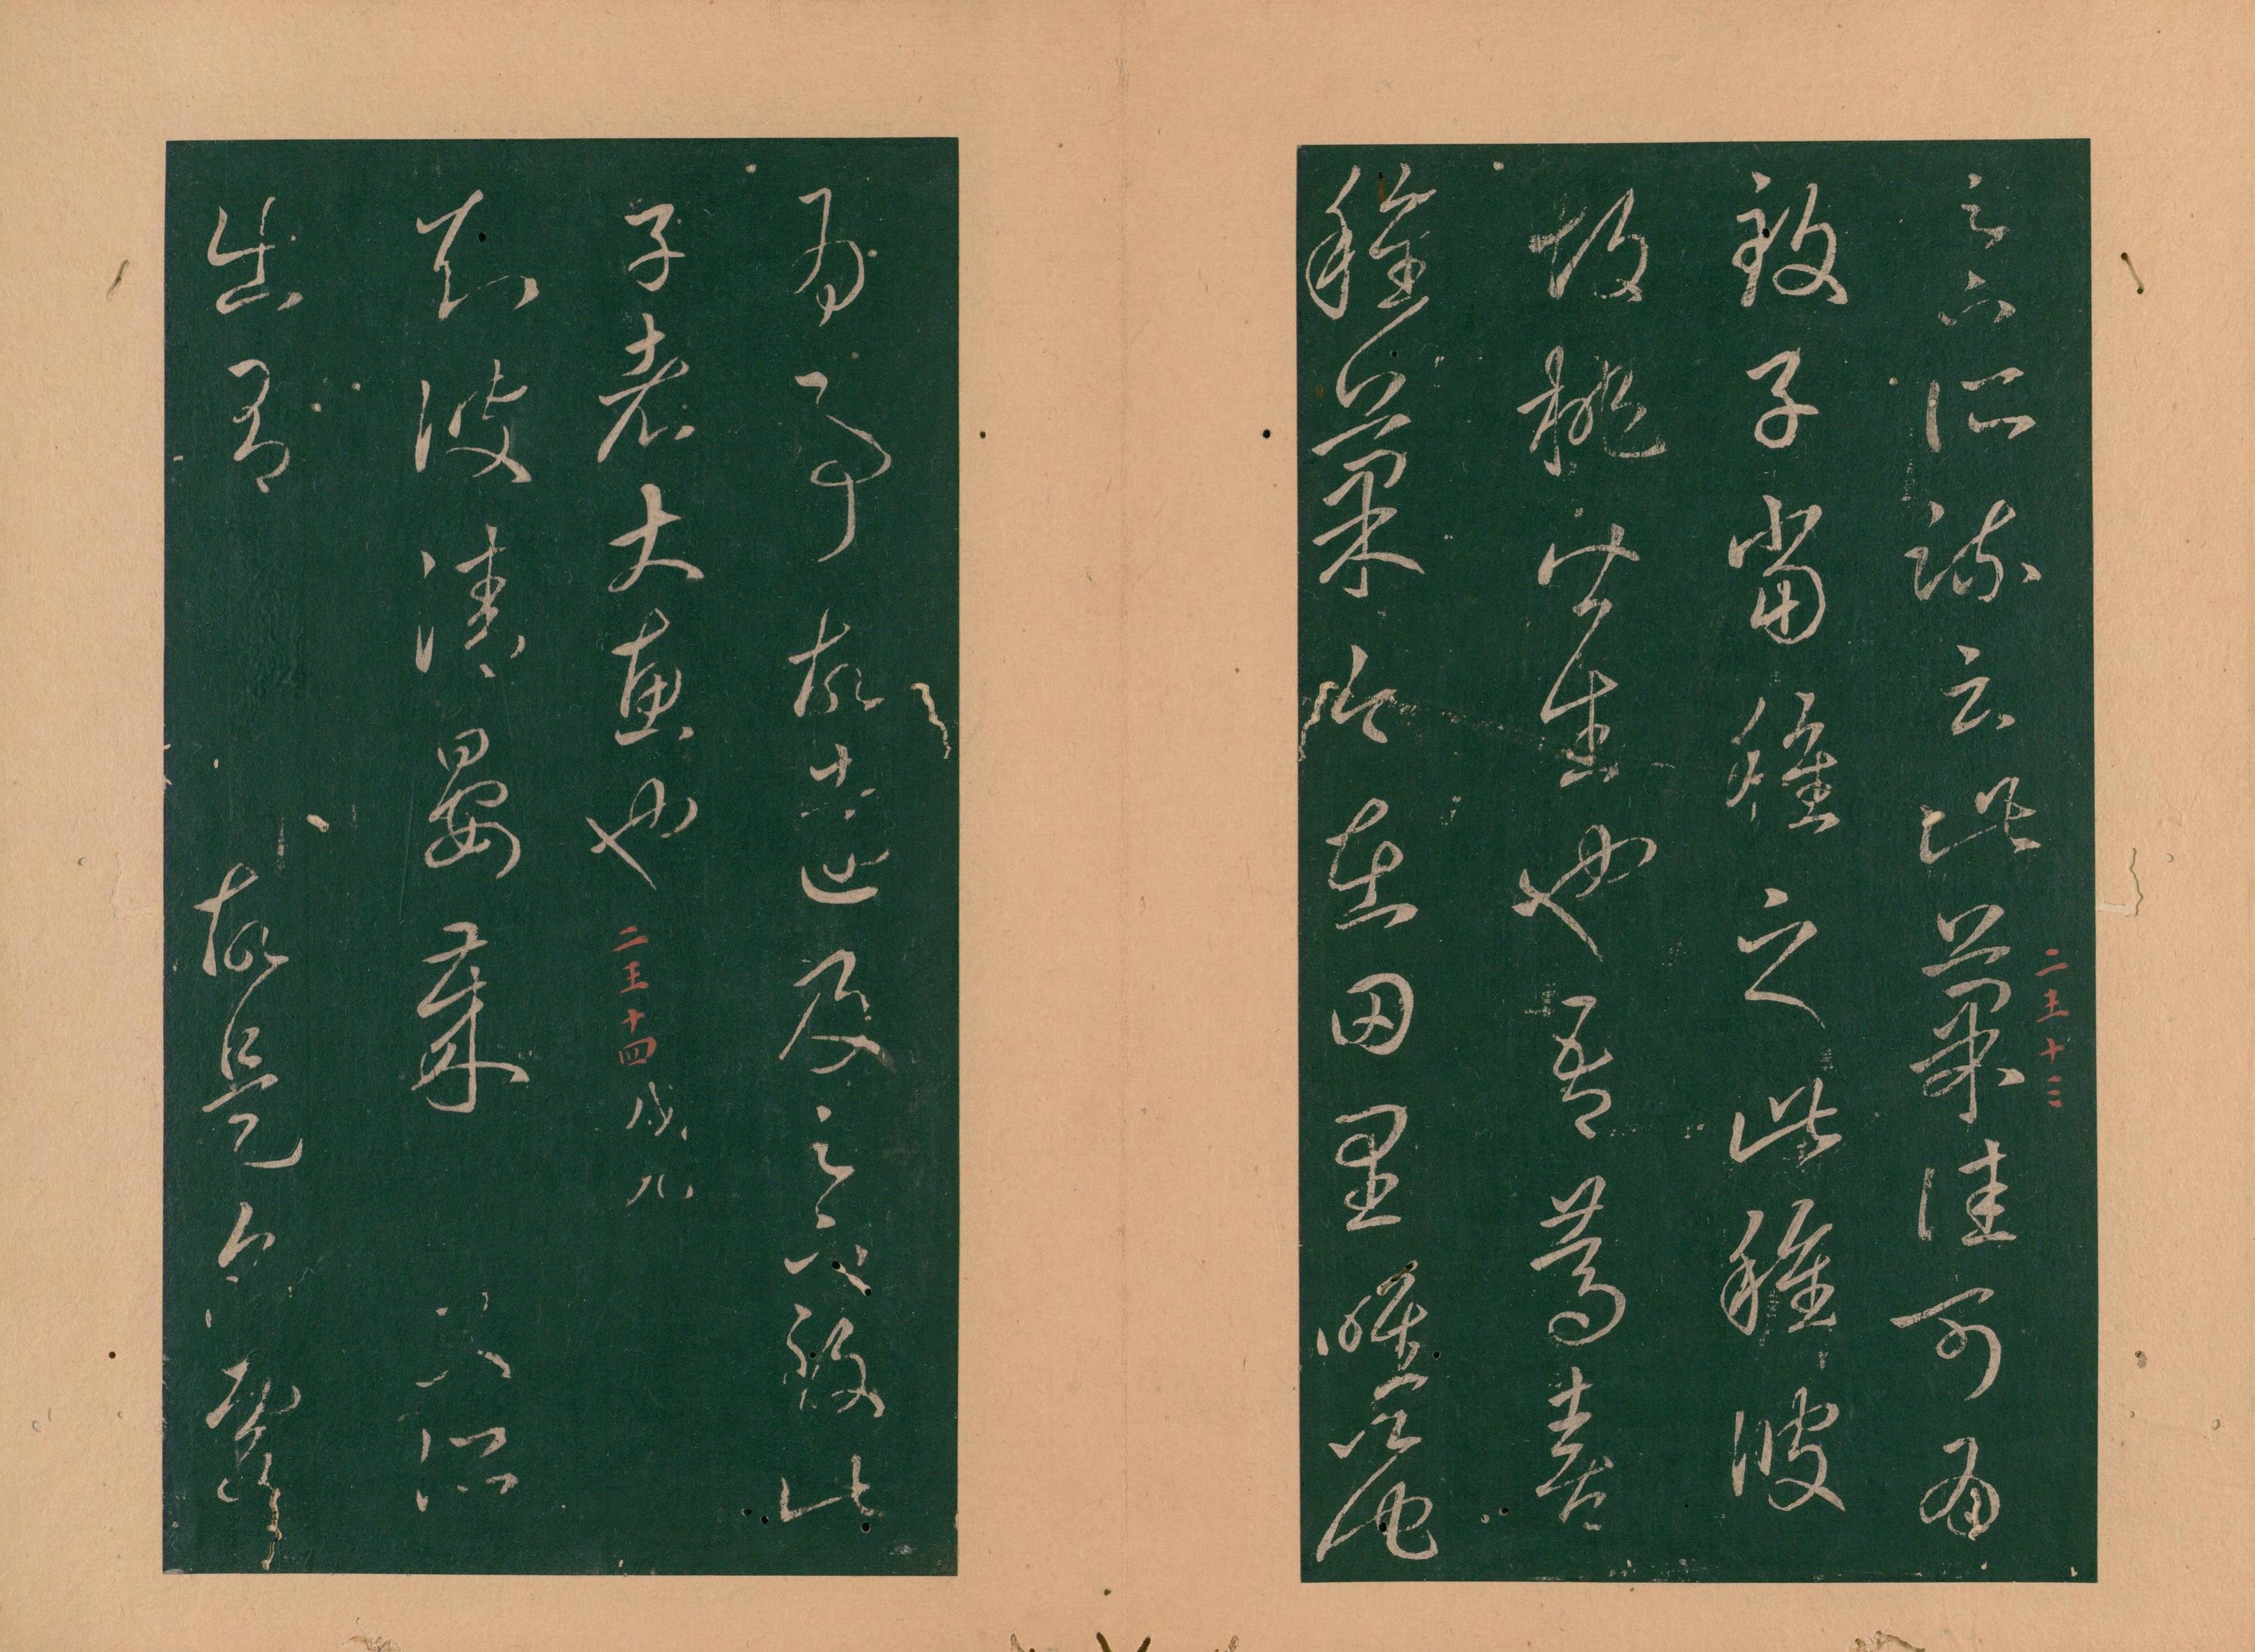 二王十三
足下所疏云此菓佳可為
致子當種之此種彼
胡桃皆生也吾篤喜
種菓今在田里唯以此
為事故遠及足下致此
子者大惠也
二王十四
知彼清晏歲又所
出有故是名處